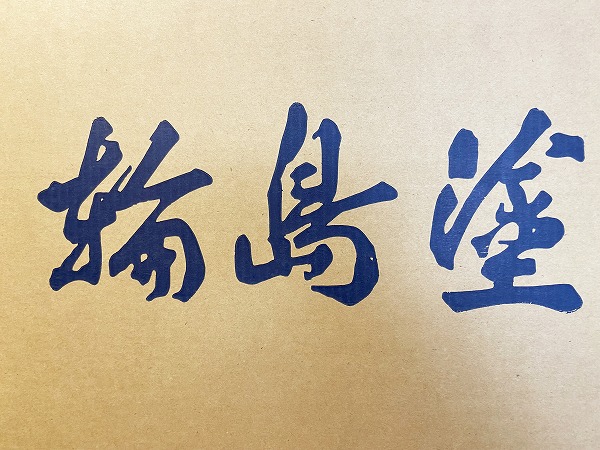 輪島塗